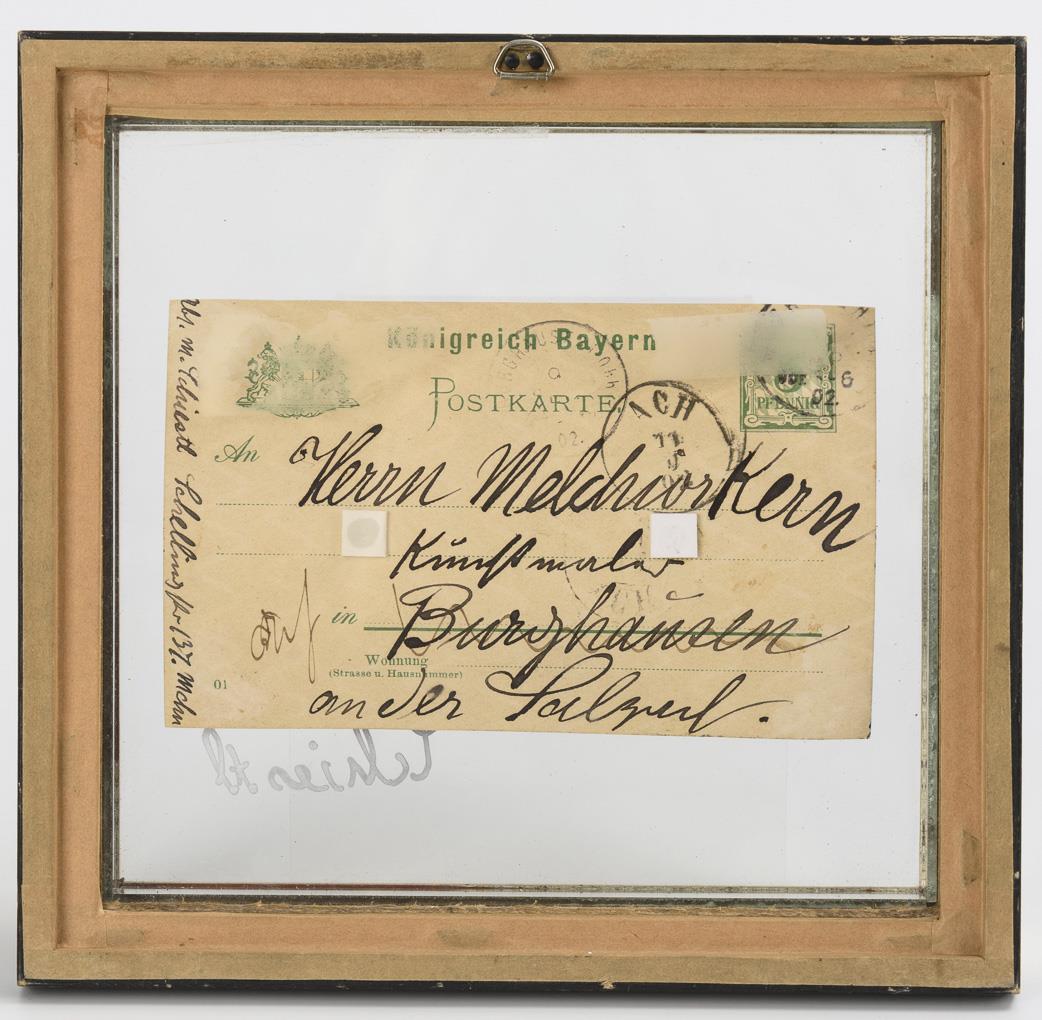 Königreich Bayern
POSTKARTE.
PFENNIG
02.
6
ACH
11
02.
An Herrn Melchior Kern
Kunstmaler
in Burghausen
Wohnung
(Strasse u. Hausnummer)
an der Salzach.
01
Abs. M. Schiestl Schellingstr 137. Mchn